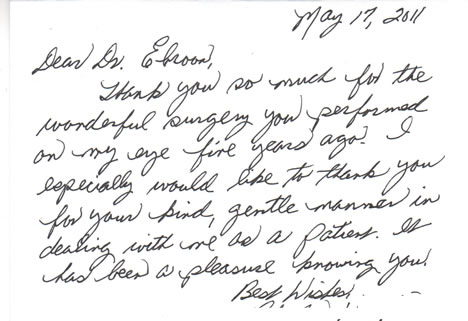 May 17, 2011
Dear Dr. Ebroon,
Thank you so much for the
wonderful surgery you performed
on my eye five years ago. I
especially would like to thank you
for your kind, gentle manner in
dealing with me as a patient. It
has been a pleasure knowing you!
Best Wishes!